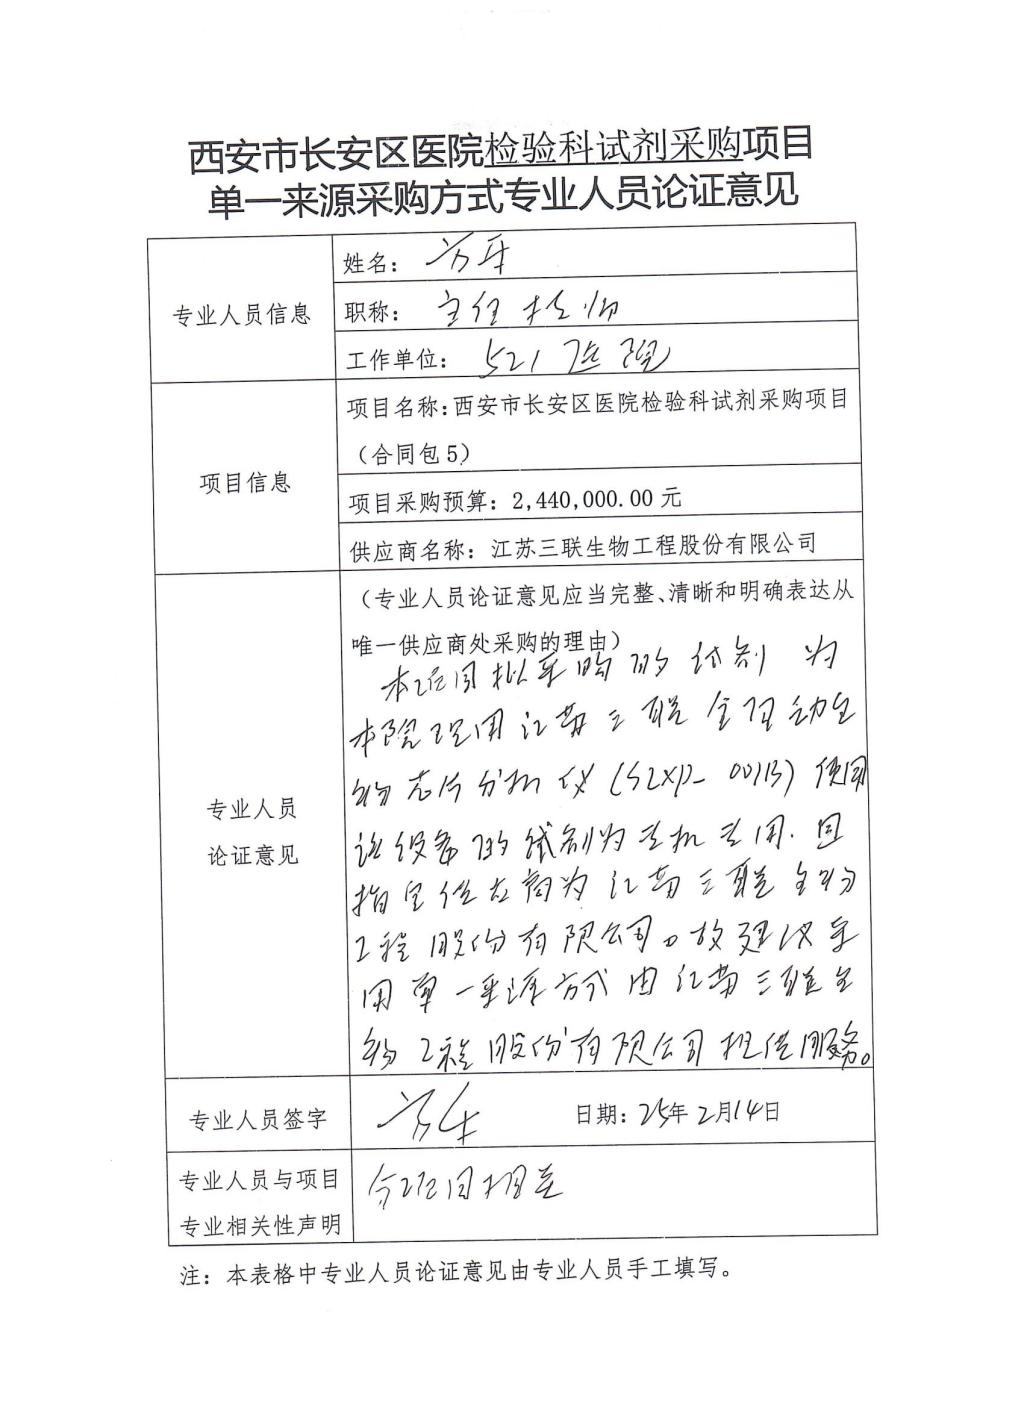 西安市长安区医院检验科试剂采购项目
单一来源采购方式专业人员论证意见
专业人员信息
姓名：
职称：主任技师
工作单位：521医院
项目信息
项目名称：西安市长安区医院检验科试剂采购项目
（合同包5）
项目采购预算：2,440,000.00元
供应商名称：江苏三联生物工程股份有限公司
专业人员
论证意见
（专业人员论证意见应当完整、清晰和明确表达从
唯一供应商处采购的理由）
本项目拟采购的试剂 为
本院现用江苏三联全自动生
物芯片分析仪(SLXP-001B)使用
该设备的试剂为专机专用.且
指定供应商为江苏三联生物
工程股份有限公司。故建议采
用单一来源方式由江苏三联生
物工程股份有限公司提供服务。
专业人员签字
日期：25年2月14日
专业人员与项目
专业相关性声明
与项目相关
注：本表格中专业人员论证意见由专业人员手工填写。